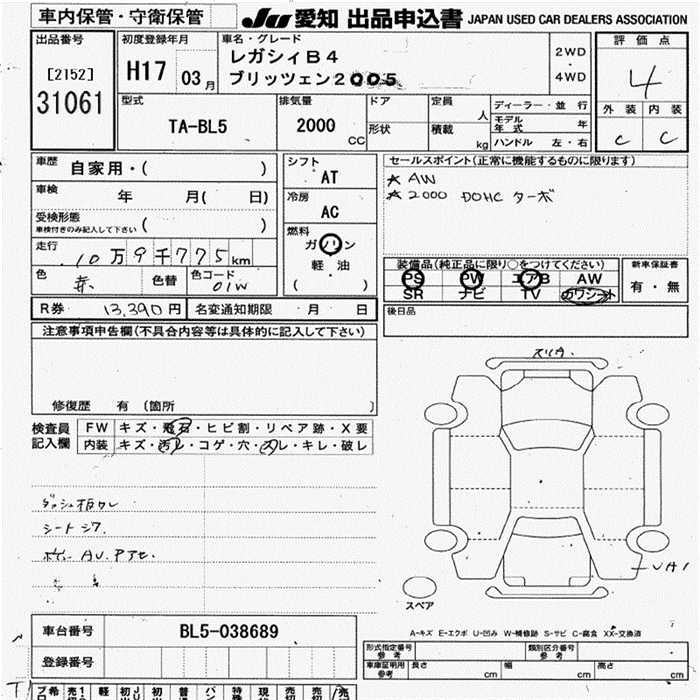 車内保管・守衛保管
JU 愛知 出品申込書 JAPAN USED CAR DEALERS ASSOCIATION
出品番号
[2152]
31061
初度登録年月
H17 03月
車名・グレード
レガシィB4
ブリッツェン2005
2WD
・
4WD
評価点
4
外装 内装
C C
型式
TA-BL5
排気量
2000
CC
ドア
形状
定員
人
積載
kg
ディーラー・並行
モデル年式 年
ハンドル 左・右
車歴 自家用・( )
車検 年 月( 日)
受検形態
車検付きのみ記入して下さい ( )
走行 10万9千775km
色
色替
色コード
01W
シフト
AT
冷房
AC
燃料
ガソリン
軽・油
( )
セールスポイント(正常に機能するものに限ります)
★ AW
★ 2000 DOHC ターボ
装備品(純正品に限り○をつけてください)
PS PW エアB AW
SR ナビ TV カワシート
新車保証書
有・無
後日品
R券 13,390円
名変通知期限 ・ 月 ・ 日
注意事項申告欄(不具合内容等は具体的に記入して下さい)
修復歴 有 〔箇所 〕
検査員記入欄
FW キズ・飛石・ヒビ割・リペア跡・X要
内装 キズ・汚レ・コゲ・穴・スレ・キレ・破レ
シートシワ
スペア
A-キズ E-エクボ U-凹み W-補修跡 S-サビ C-腐食 XX-交換済
車台番号 BL5-038689
登録番号
形式指定番号 参考
類別区分番号 参考
車庫証明用 参考
長さ cm 幅 cm 高さ cm